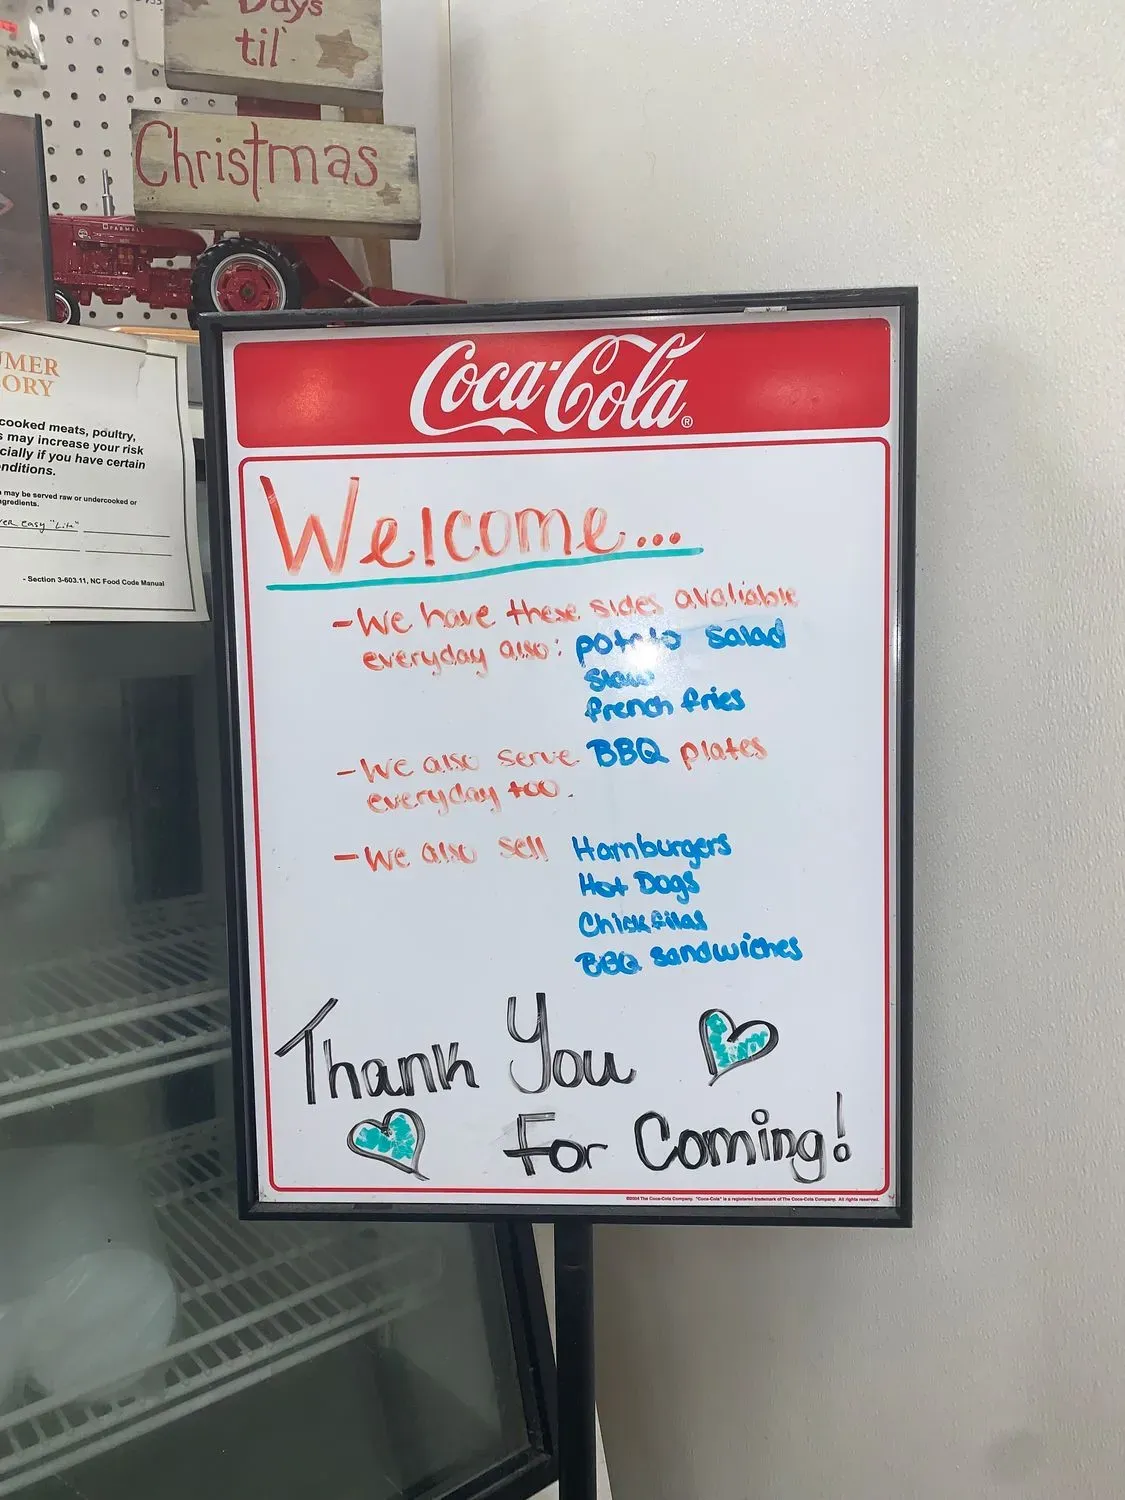 Days
til'
Christmas
FARMALL
UMER
ORY
cooked meats, poultry,
s may increase your risk
cially if you have certain
nditions.
may be served raw or undercooked or
ngredients.
ver easy "Lite"
- Section 3-603.11, NC Food Code Manual
Coca-Cola®
Welcome...
- We have these sides avaliable
everyday also: potato salad
slaw
french fries
- We also serve BBQ plates
everyday too.
- We also sell Hamburgers
Hot Dogs
Chickfilas
BBQ Sandwiches
Thank You
For Coming!
©2004 The Coca-Cola Company. "Coca-Cola" is a registered trademark of The Coca-Cola Company. All rights reserved.